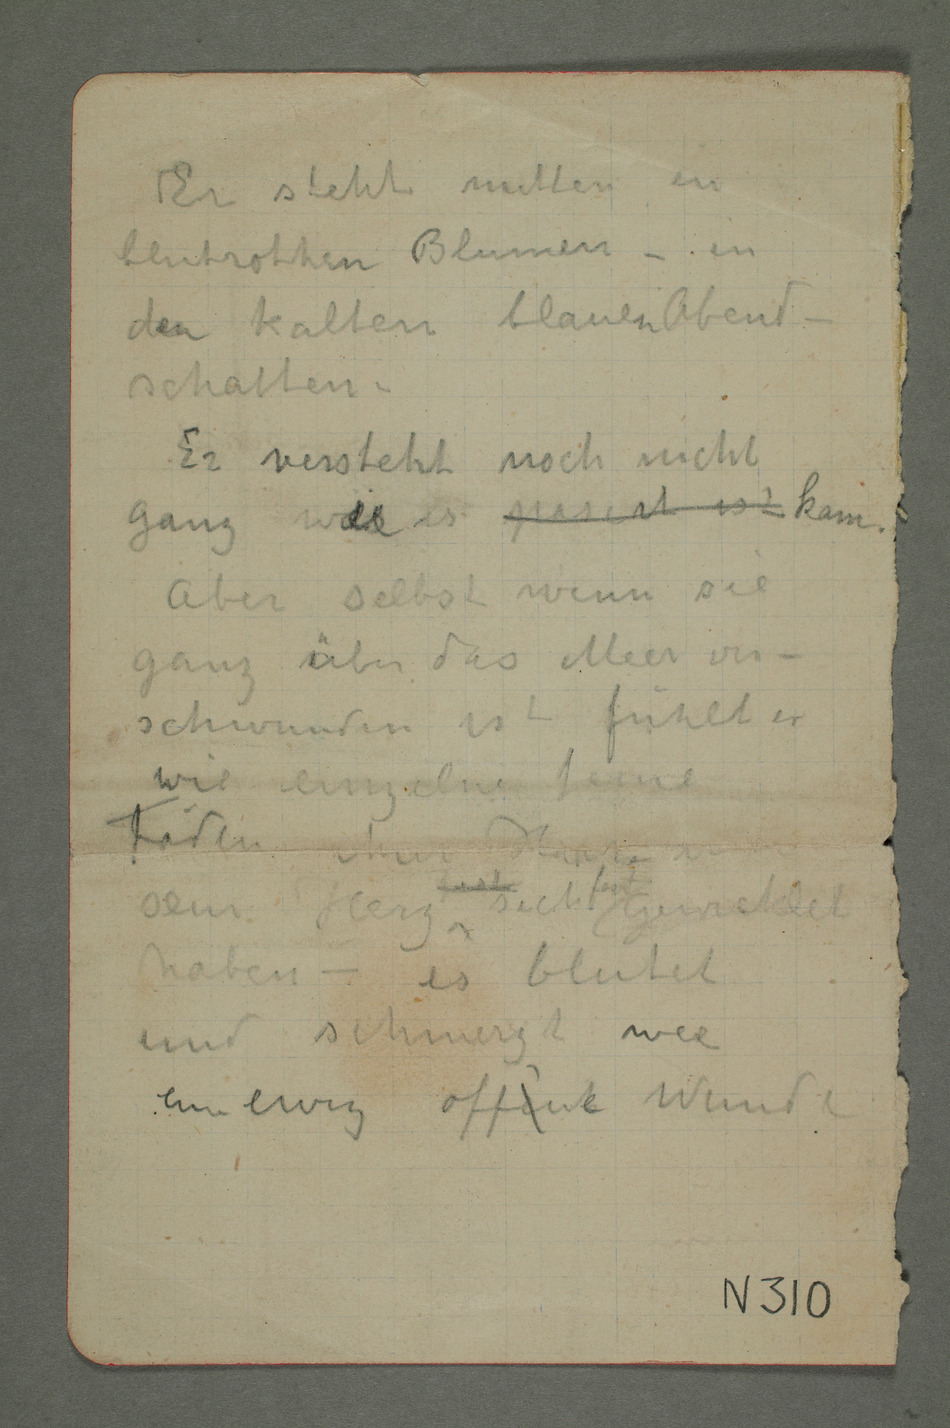 Er steht mitten in
blutrothen Blumen – in
den kalten blauen Abend–
schatten –
Er versteht noch nicht
ganz wie es pasiert ist kam.
Aber selbst wenn sie
ganz über das Meer ver–
schwunden ist fühlt er
wie einzelne feine
Fäden ihrer Haare
sein Herz fest sich fest gewickelt
haben – es blutet
und schmerzt wie
ein ewig offene Wunde
N310